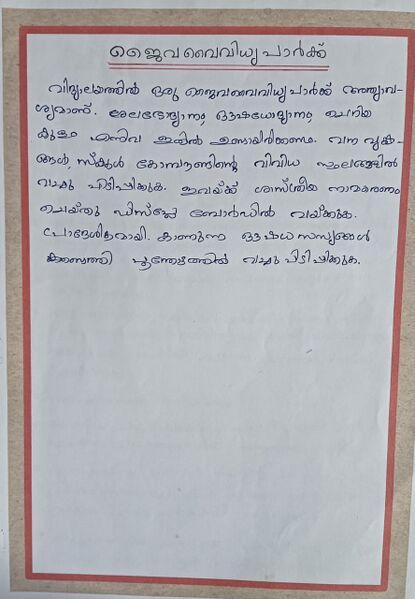 ജൈവവൈവിധ്യ പാർക്ക്
വിദ്യാലയത്തിൽ ഒരു ജൈവവൈവിധ്യ പാർക്ക് അത്യാവ-
ശ്യമാണ്. ശലഭോദ്യാനം, ഔഷധോദ്യാനം, ചെറിയ
കുളം എന്നിവ ഇതിൽ ഉണ്ടായിരിക്കണം. വന വൃക്ഷ-
ങ്ങൾ, സ്കൂൾ കോമ്പൗണ്ടിന്റെ വിവിധ സ്ഥലങ്ങളിൽ
വച്ചു പിടിപ്പിക്കുക. ഇവയ്ക്ക് ശാസ്ത്രീയ നാമകരണം
ചെയ്തു ഡിസ്പ്ലേ ബോർഡിൽ വയ്ക്കുക.
പ്രാദേശികമായി കാണുന്ന ഔഷധ സസ്യങ്ങൾ
കണ്ടെത്തി പൂന്തോട്ടത്തിൽ വച്ചു പിടിപ്പിക്കുക.